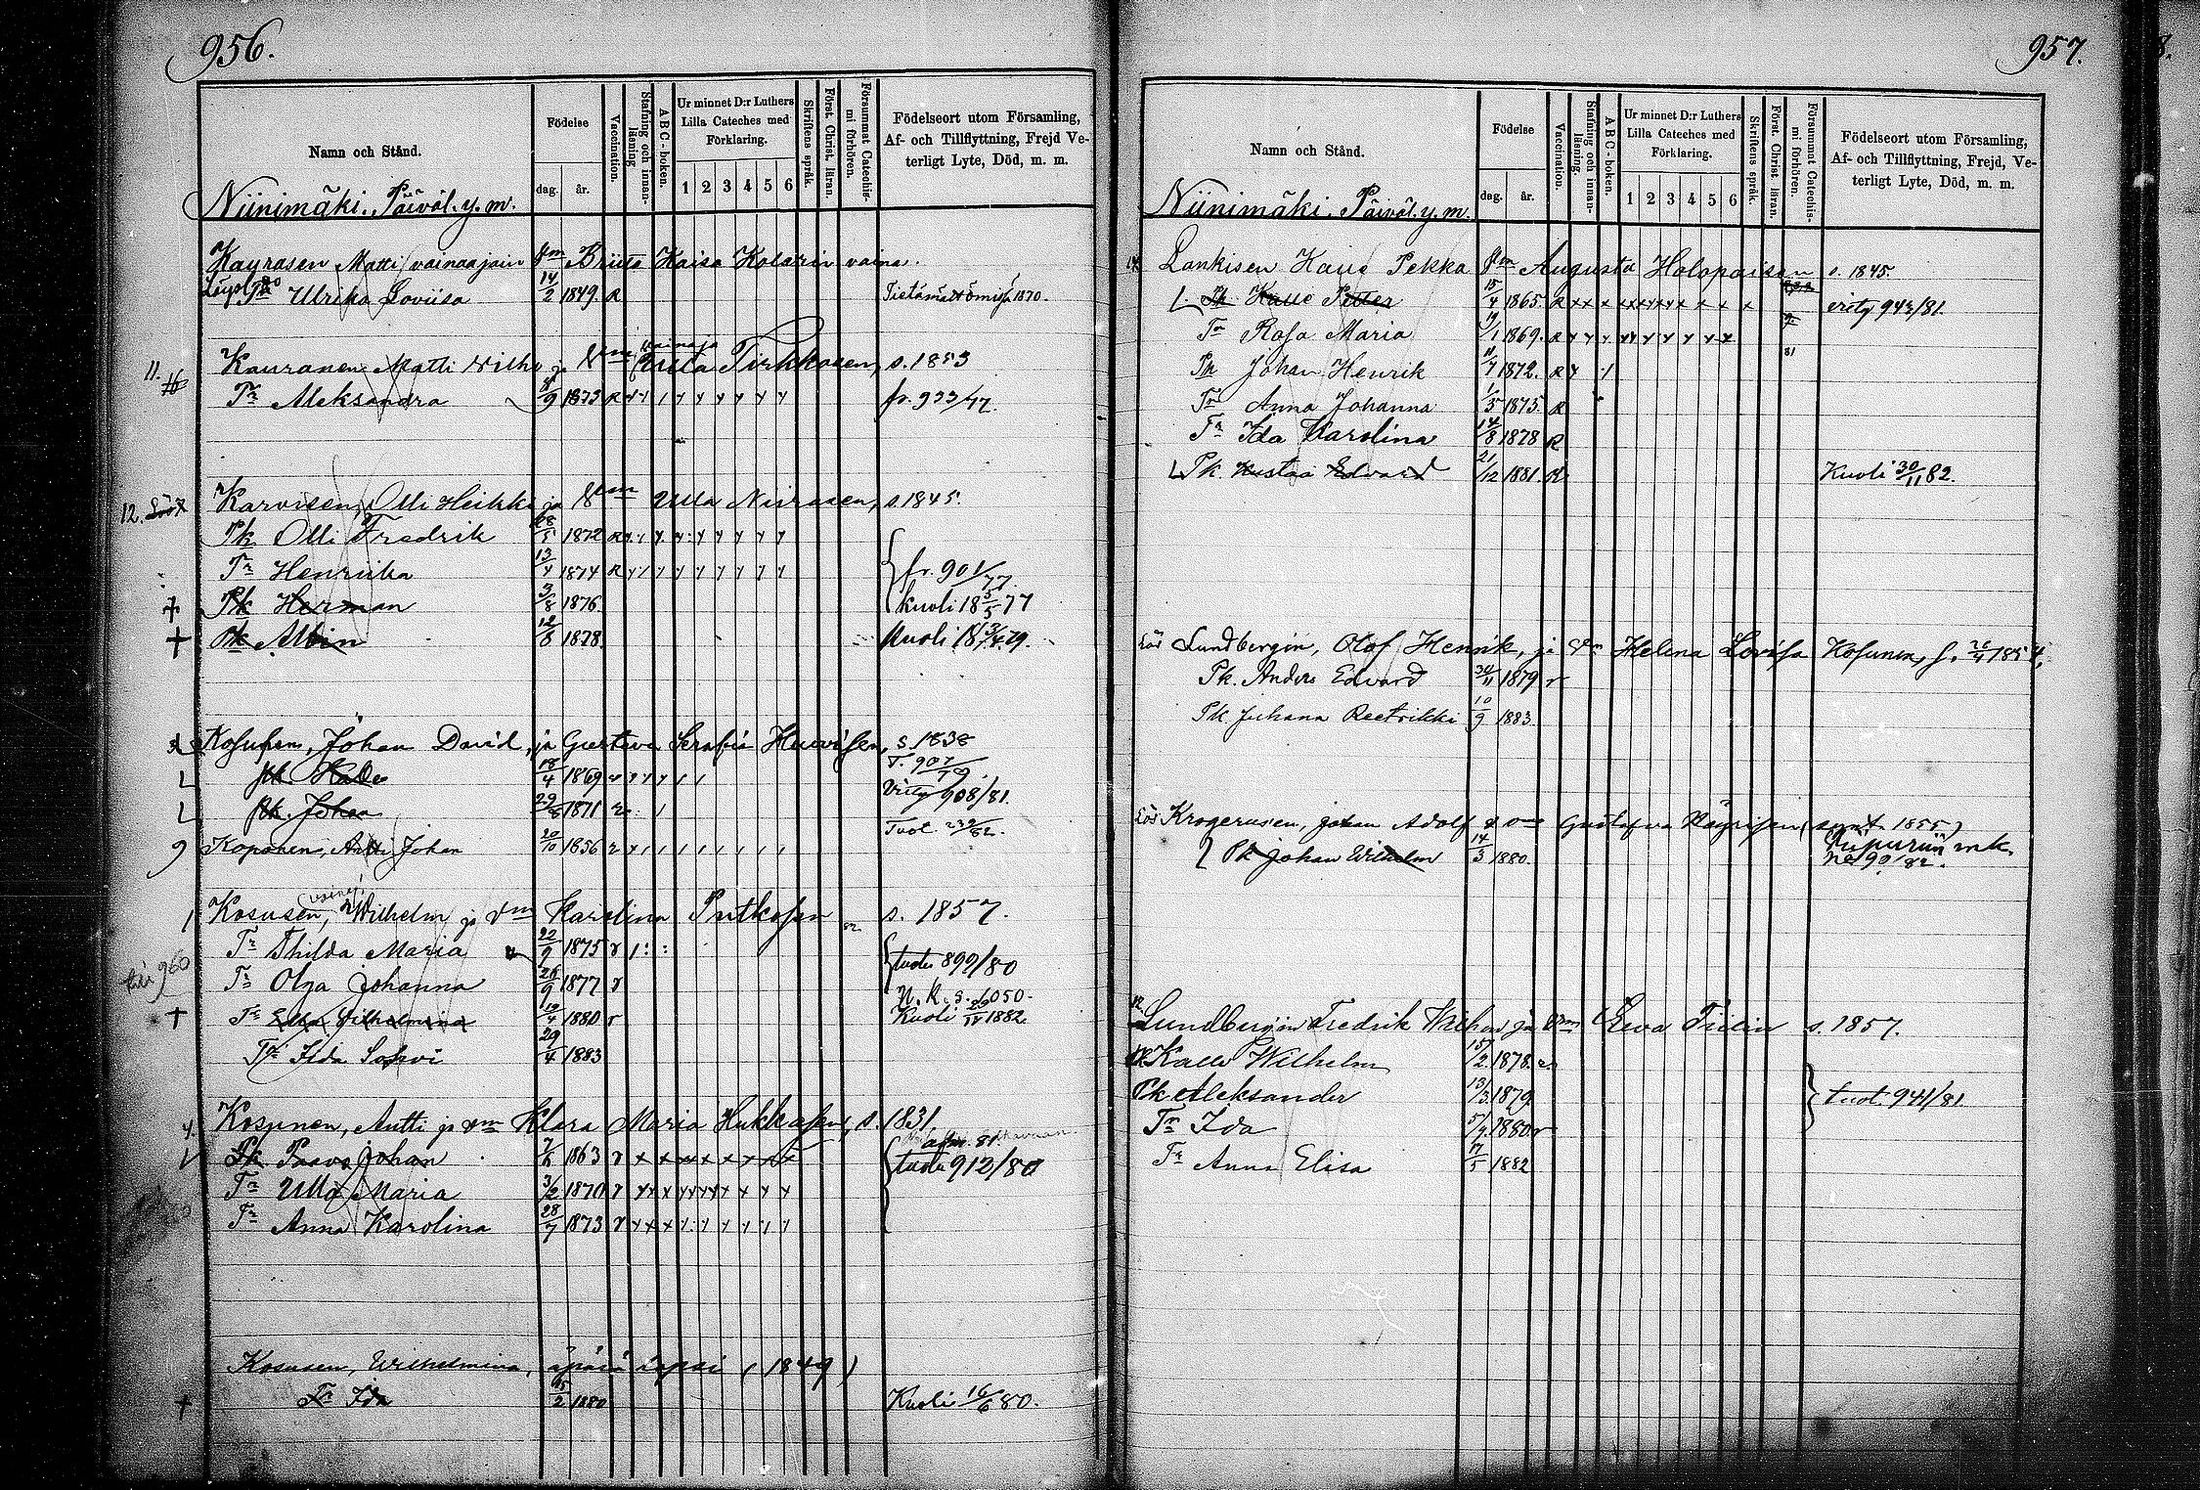 956.
Namn och Stånd.
Födelse
dag. år.
Vaccination.
Stafning och innan-läsning
A B C-boken.
Ur minnet D:r Luthers Lilla Cateches med Förklaring.
1 2 3 4 5 6
Skriftens språk.
Förest. Christ. läran.
Försummat Catechis-mi förhören.
Födelseort utom Församling, Af- och Tillflyttning, Frejd Ve-terligt Lyte, Död, m. m.
Niinimäki. Päiväl. y. m.
Kayrasen Matti vainaajain Vm Briita Kaisa Kolarin vaina.
Tr Ulrika Loviisa 14/2 1849. R 1870.
11. Kauranen Matti Vilho ja Vm Ulla Pirkkosen, s. 1853
Tr Aleksandra 8/9 1873 fr. 933/77.
12. Karvisen, Olli Heikki ja Vm Ulla Niirasen, s. 1845.
Pk Olli Fredrik 28/5 1872
Tr Henriika 13/4 1874 fr. 901/77.
Pk Herman 3/8 1876 kuoli 18 5/5 77
Pk Albin 12/8 1878. Kuoli
Kosusen, Johan David, ja Gustava Serafia Huovisen, s. 1838
T. 907/79.
pk Kalle 18/4 1869
Virty 908/81.
pk. Johan 29/8 1871
Tuot 239/82.
Koponens, Antti Johan 20/10 1856
Kosusen, Wilhelm ja Vm Karolina Putkosen s. 1857.
Tr Thilda Maria 22/9 1875 r
tuotu 899/80
Tr Olga Johanna 26/9 1877 r
N. k. s. 1050.
Tr Ella Vilhelmina 19/4 1880 r Kuoli 1882.
Tr Iida Sohvi 29/4 1883
Kosunen, Antti ja Vm Klara Maria Hukkasen, s. 1831.
Pk Paavo Johan 7/6 1863 r tuotu 912/80
Tr Ulla Maria 3/2 1870 r
Tr Anna Karolina 28/7 1873 r
Kosusen, Wilhelmina, äpärä lapsi (1849)
Tr Ida 15/2 1880 Kuoli 16/6 80.
957.
Namn och Stånd.
Födelse
dag. år.
Vaccination.
Stafning och innan-läsning.
A B C-boken.
Ur minnet D:r Luthers Lilla Cateches med Förklaring.
1 2 3 4 5 6
Skriftens språk.
Förest. Christ läran.
Försummat Catechis-mi förhören.
Födelseort utom Församling, Af- och Tillflyttning, Frejd, Ve-terligt Lyte, Död, m. m.
Niinimäki. Päiväl. y. m.
Lankisen Kalle Pekka Vm Augusta Holopaisen s. 1845.
Pk Kalle Petter 15/4 1865. R virty 943/81.
Tr Rosa Maria 19/1 1869. R
Pk Johan Henrik 11/7 1872. R
Tr Anna Johanna 1/5 1875. R
Tr Ida Karolina 14/8 1878 R
Pk. Kustaa Edvard 21/12 1881. R Kuoli 30/11 82.
Lös Lundbergin, Olof Henrik, ja Vm Helena Lovisa Kosunen, s. 26/4 1854.
Pk. Anders Edvard 30/11 1879 r
Pk. Juhana Reetrikki 10/9 1883.
Lös Krogerusen, Johan Adolf Gustafva Väyrisen (synt. 1855)
Pk Johan Wilhelm 14/3 1880. mk. no 90/82.
Lundbergin Fredrik Wilhem ja Vm Eeva Piilin s. 1857.
Pk Kalle Wilhelm 15/2 1878.
Pk Aleksander 13/3 1879. tuot. 941/81.
Tr Ida 5/7 1880 r
Tr Anna Elisa 17/5 1882